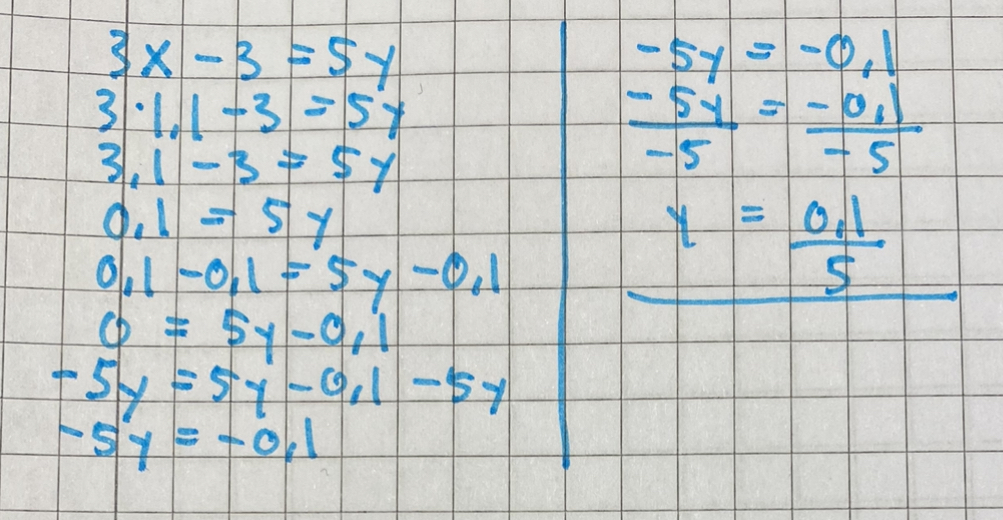 3x - 3 = 5y
3·1,1 - 3 = 5y
3,1 - 3 = 5y
0,1 = 5y
0,1 - 0,1 = 5y - 0,1
0 = 5y - 0,1
-5y = 5y - 0,1 - 5y
-5y = -0,1
-5y = -0,1
-5y/-5 = -0,1/-5
y = 0,1/5